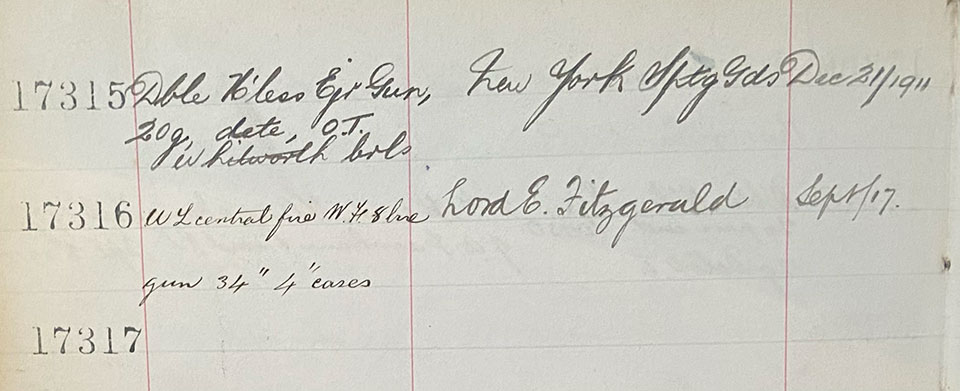 17315 Dble H'less Ejr Gun, New York Sptg Gds Dec 21/1911
20g, date, O.T.
Whitworth brls
17316 W L central fire W F 8 bre Lord E. Fitzgerald Sept/17.
gun 34" 4" cases
17317